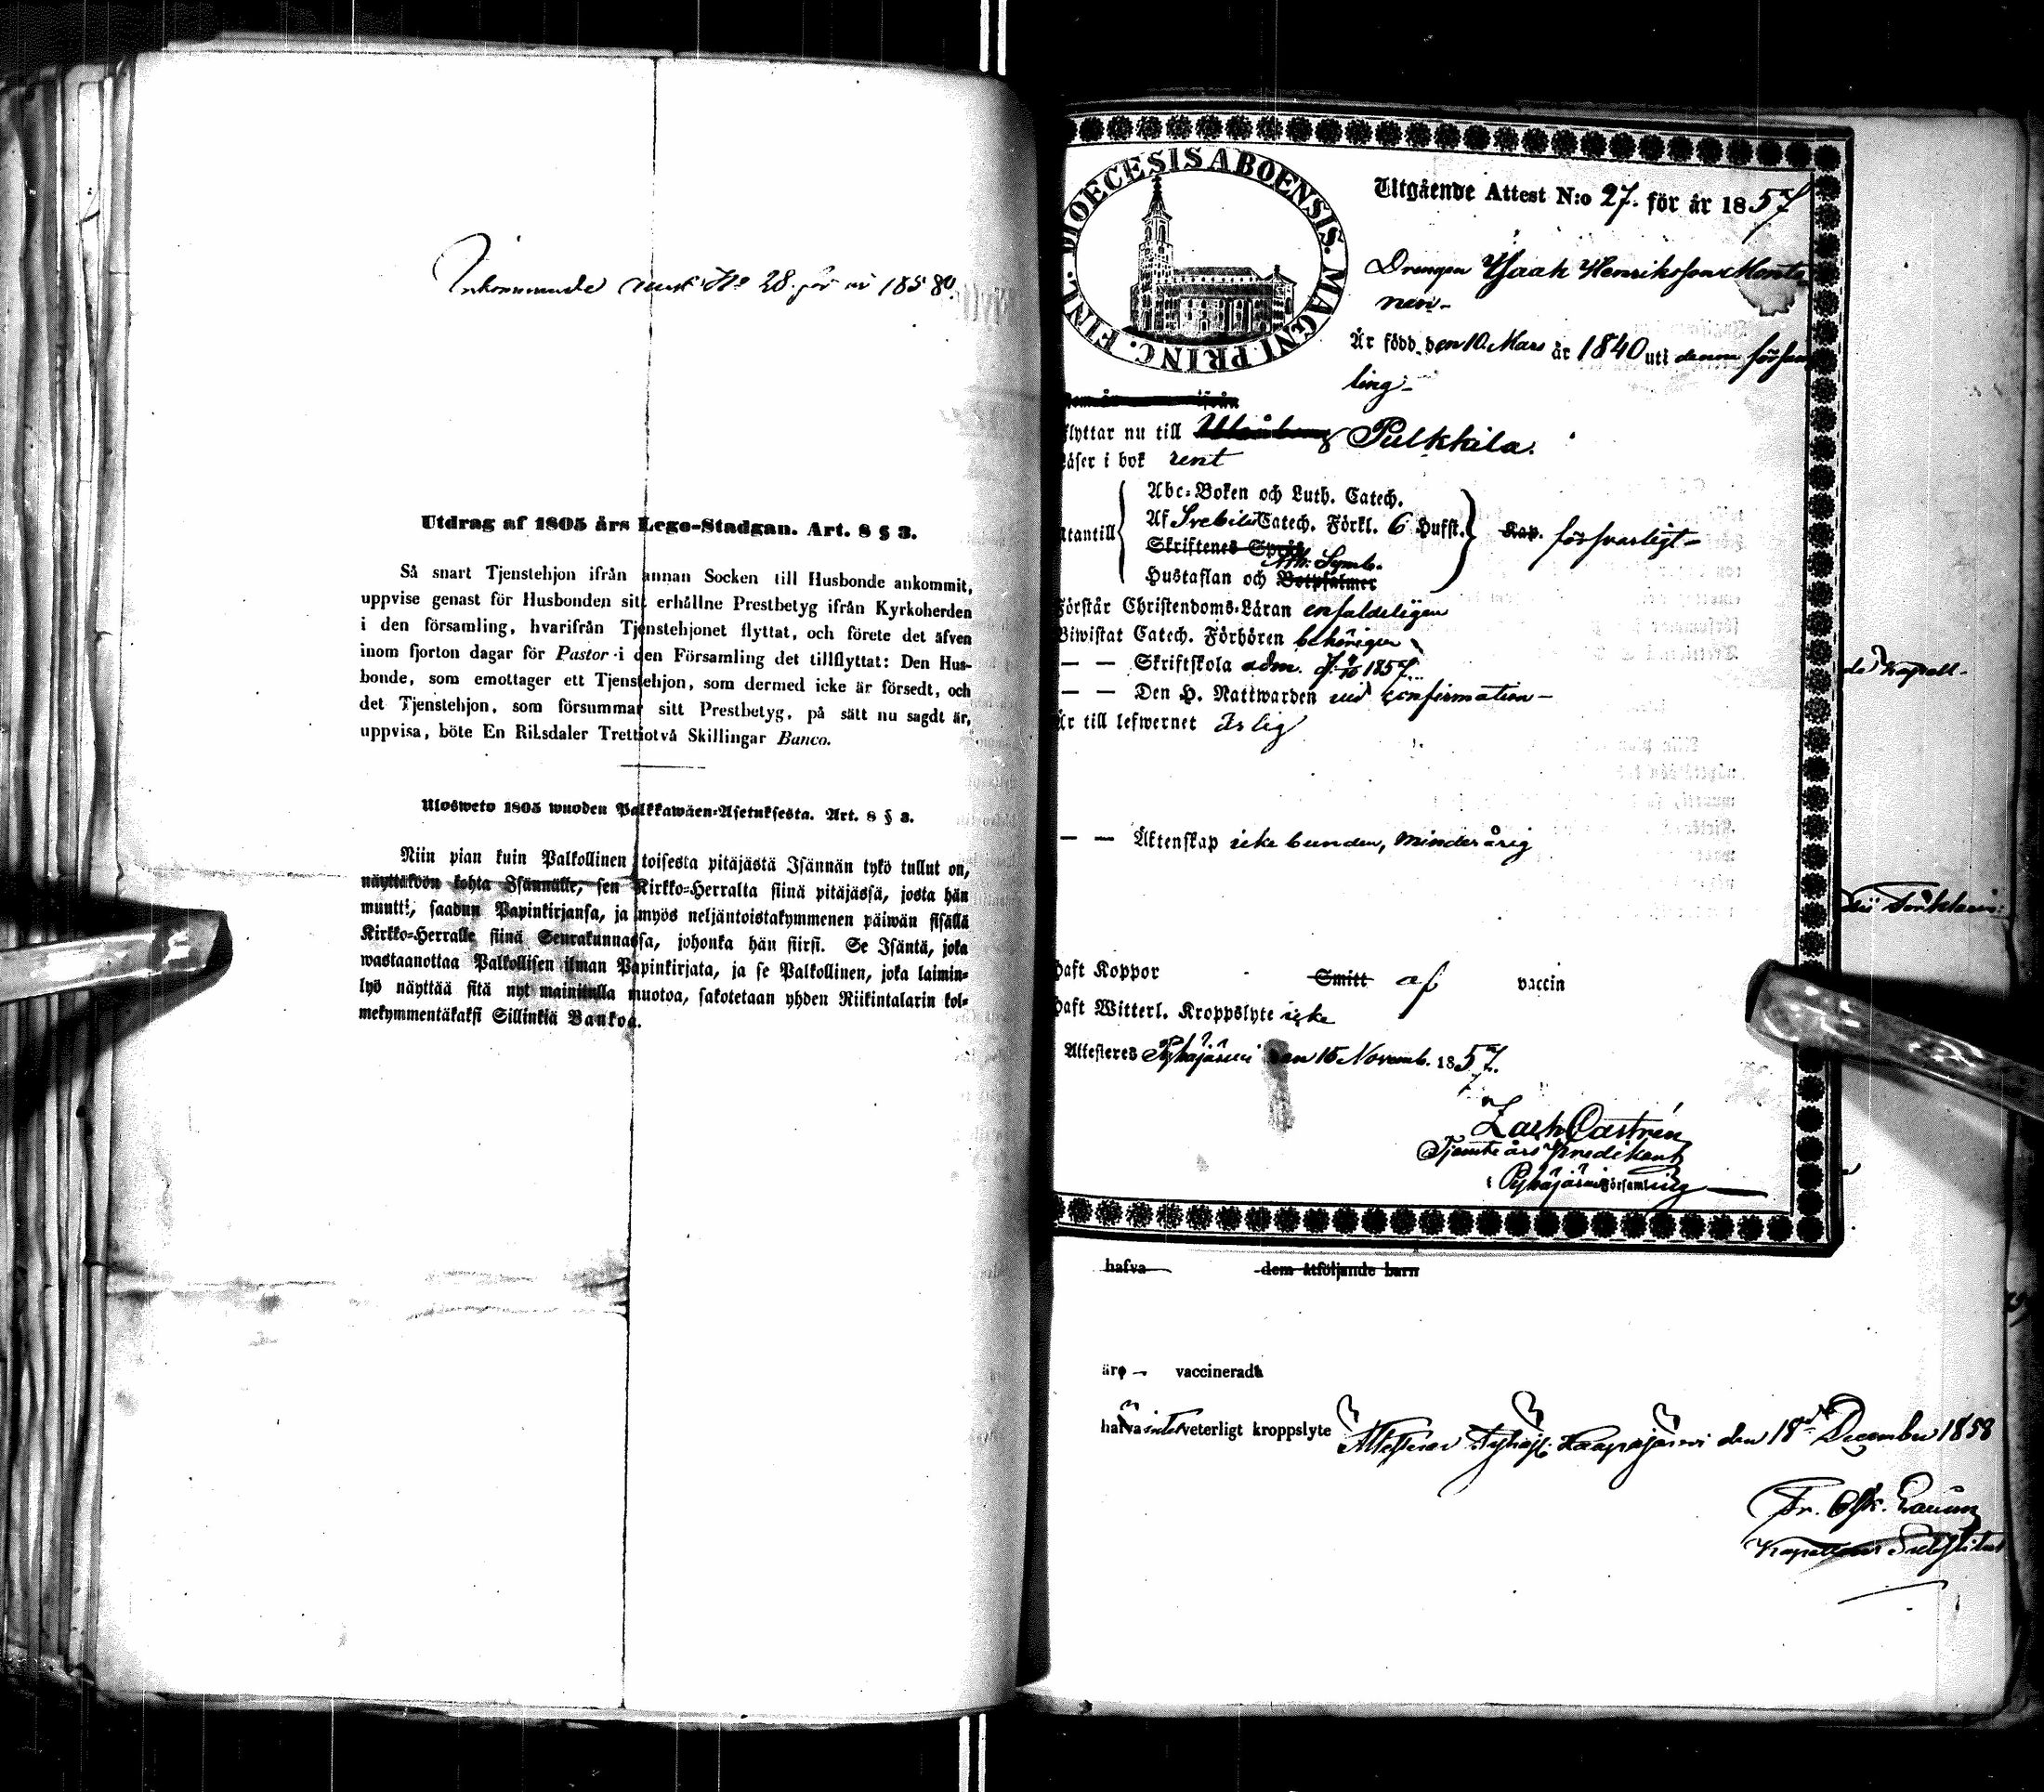 Inkommande N:o 28 för år 1858
Utdrag af 1805 års Lego-Stadgan. Art. 8 § 3.
Så snart Tjenstehjon ifrån annan Socken till Husbonde ankommit,
uppvise genast för Husbonden sitt erhållne Prestbetyg ifrån Kyrkoherden
i den församling, hvarifrån Tjenstehjonet flyttat, och förete det äfven
inom fjorton dagar för Pastor i den Församling det tillflyttat: Den Hus-
bonde, som emottager ett Tjenstehjon, som dermed icke är försedt, och
det Tjenstehjon, som försummar sitt Prestbetyg, på sätt nu sagdt är,
uppvisa, böte En Riksdaler Trettiotvå Skillingar Banco.
Ulosweto 1805 wuoden Palkkawäen-Asetuksesta. Art. 8 § 3.
Niin pian kuin Palkollinen toisesta pitäjästä Isännän tykö tullut on,
näyttäköön kohta Isännälle, sen Kirkko-Herralta siinä pitäjässä, josta hän
muutti, saadun Papinkirjansa, ja myös neljäntoistakymmenen päiwän sisällä
Kirkko-Herralle siinä Seurakunnassa, johonka hän siirsi. Se Isäntä, joka
wastaanottaa Palkollisen ilman Papinkirjata, ja se Palkollinen, joka laimin-
lyö näyttää sitä nyt mainitulla muotoa, sakotetaan yhden Riikintalarin kol-
mekymmentäkaksi Sillinkiä Bankoa.
FINL. DIOECESIS ABOENSIS. MAGNI PRINC.
Utgående Attest N:o 27. för år 1857
Drengen Isaak Henriksson Monta
nen
Är född den 10 Mars år 1840 uti denna försam
ling
flyttar nu till Uleåborg Pulkkila.
läser i bok rent
Abc-Boken och Luth. Catech.
Af Svebilii Catech. Förkl. 6 Hufst.
utantill Kap. försvarligt
Skriftenes Språk
Ath. Symb.
Hustaflan och Botpsalmer
Förstår Christendoms-Läran enfaldeligen
Biwistat Catech. Förhören behörigen
— — Skriftskola adm. 1857
— — Den H. Nattwarden vid confirmation
Är till lefwernet ärlig
— — Äktenskap icke bunden, minderårig
haft Koppor Smitt af vaccin
haft Witterl. Kroppslyte icke
Attesteres Pyhäjärvi den 15 Novemb. 1857.
Zach Castrén
Tjenste års Predikant
i Pyhäjärvi Församling
hafva dem åtföljande barn
äro vaccinerade
hafva intet veterligt kroppslyte Attesterar Haapajärvi den 18de December 1858
Fr. Osk.
Kapellans Substitut